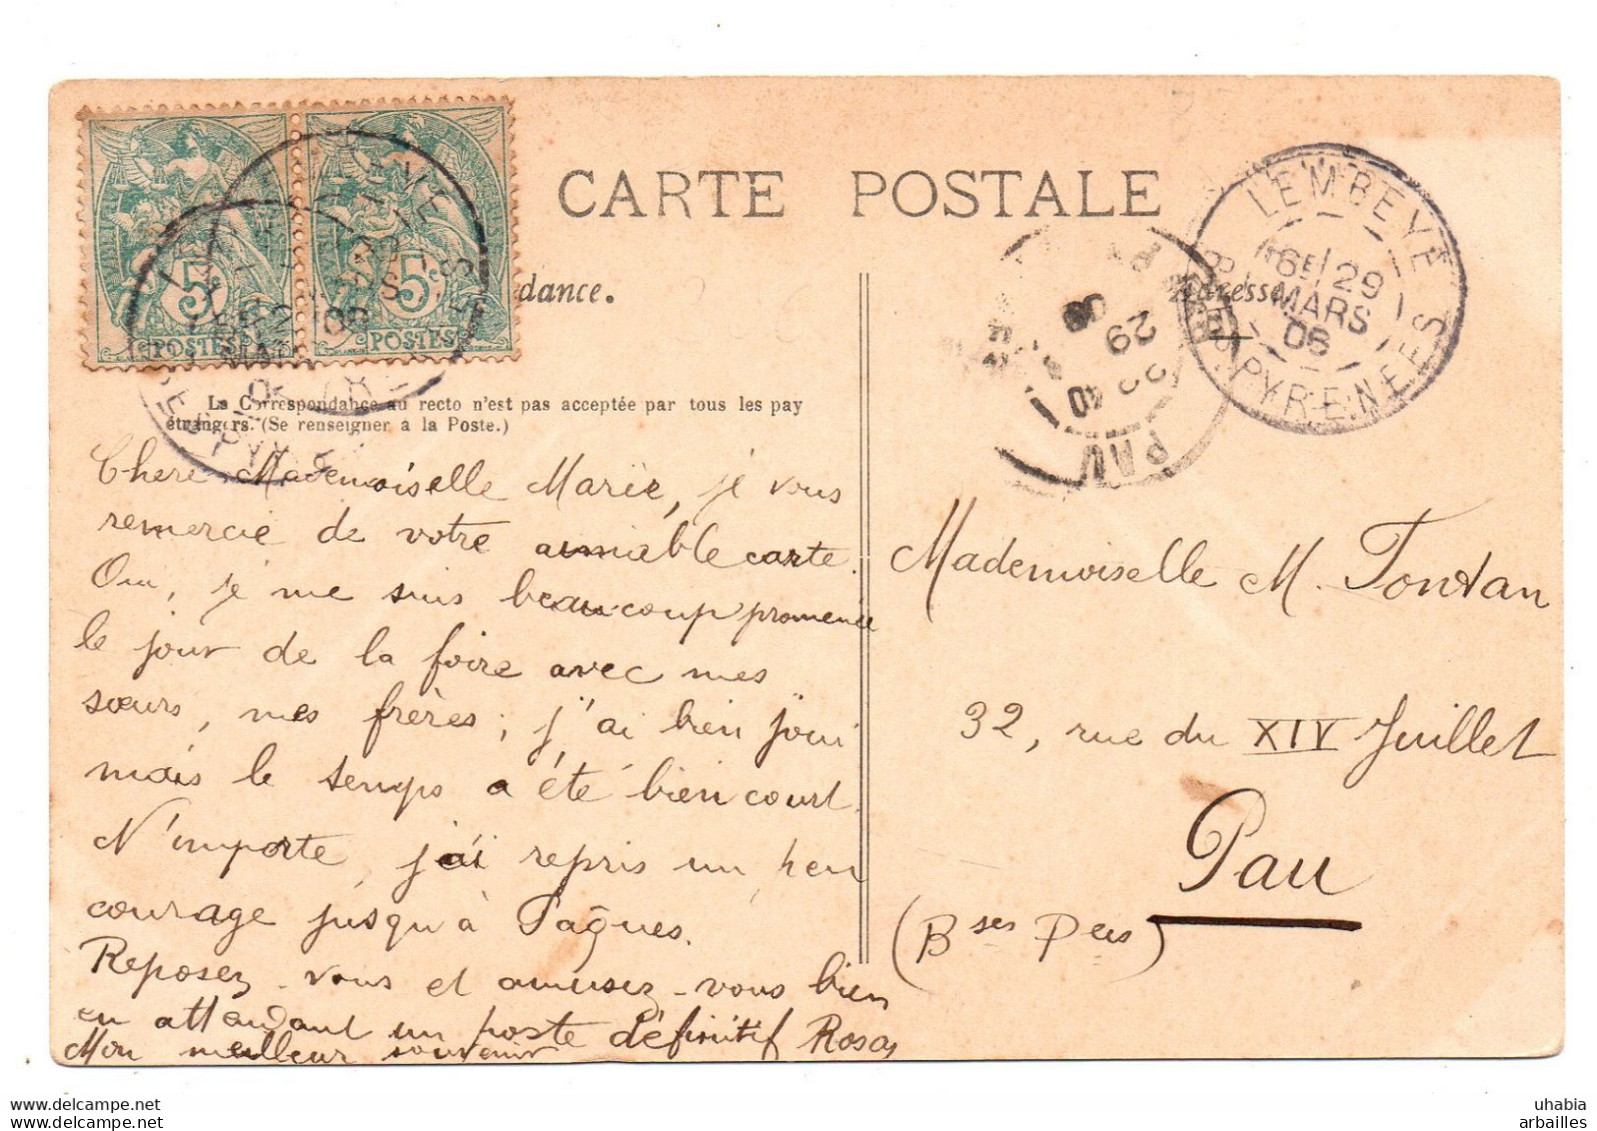 CARTE POSTALE
dance.
Adresse
5c
POSTES
5c
POSTES
LEMBEYE
6E/29
MARS
06
BSES PYRENEES
29
PAU
La Correspondance au recto n'est pas acceptée par tous les pay
étrangers. (Se renseigner à la Poste.)
Chère Mademoiselle Marie, je vous
remercie de votre aimable carte.
Oui, je me suis beaucoup promenée
le jour de la foire avec mes
sœurs, mes frères; j'ai bien joui
mais le temps a été bien court.
N'importe, j'ai repris un peu
courage jusqu'à Pâques.
Reposez-vous et amusez-vous bien
en attendant un poste définitif Rosa
Mon meilleur souvenir
Mademoiselle M. Tontan
32, rue du XIV Juillet
Pau
(Bses Pees)
www.delcampe.net
uhabia
arbailles